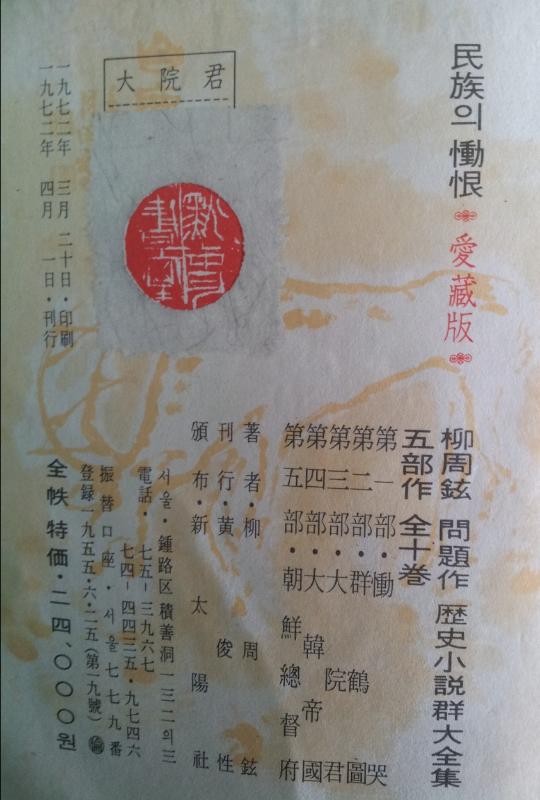 民族의 慟恨 愛藏版
柳周鉉 問題作 歴史小説群大全集
五部作 全十巻
第一部・慟哭
第二部・群鶴圖
第三部・大院君
第四部・大韓帝國
第五部・朝鮮總督府
大院君
一九七二年 三月 二十日・印刷
一九七二年 四月 一日・刊行
著者・柳周鉉
刊行・黄俊性
頒布・新太陽社
서울・鍾路区積善洞一三二의三
電話・七五―三九六七
七四―四四三五・九七四六
振替口座・서울七七九番
登録一九五五・六・二五(第一九號)
全帙 特価・二四、〇〇〇원